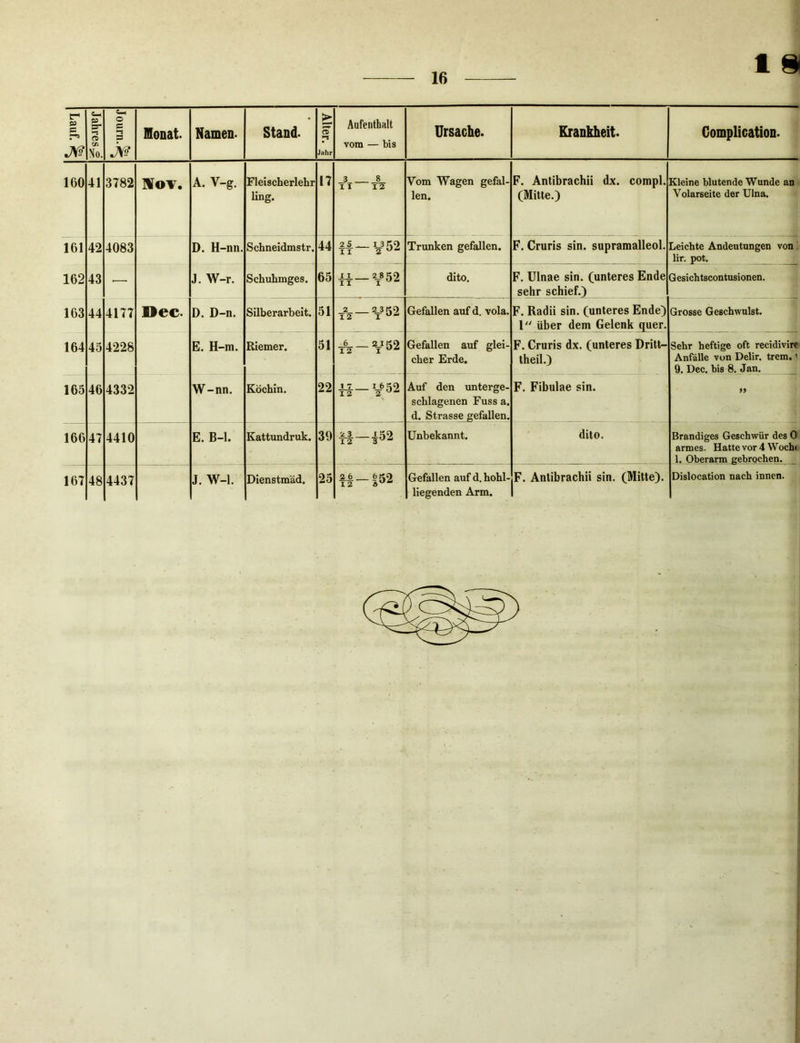 16
1 8
Lauf. № | Jahres No. | Journ. № | Monat. | Namen. | Stand. | Alter. Jahr | Aufenthalt vom — bis | Ursache. | Krankheit. | Complication.
160 | 41 | 3782 | Nov. | A. V-g. | Fleischerlehr | 17 | 3/11 — 8/12 | Vom Wagen gefal- | F. Antibrachii dx. compl. | Kleine blutende Wunde an
ling. | len. | (Mitte.) | Volarseite der Ulna.
161 | 42 | 4083 | D. H-nn. | Schneidmstr. | 44 | 25/11 — 13/2 52 | Trunken gefallen. | F. Cruris sin. supramalleol. | Leichte Andeutungen von
lir. pot.
162 | 43 | — | J. W-r. | Schuhmges. | 65 | 11/11 — 28/1 52 | dito. | F. Ulnae sin. (unteres Ende | Gesichtscontusionen.
sehr schief.)
163 | 44 | 4177 | Dec. | D. D-n. | Silberarbeit. | 51 | 2/12 — 23/1 52 | Gefallen auf d. vola. | F. Radii sin. (unteres Ende) | Grosse Geschwulst.
1″ über dem Gelenk quer.
164 | 45 | 4228 | E. H-m. | Riemer. | 51 | 6/12 — 27/1 52 | Gefallen auf glei- | F. Cruris dx. (unteres Dritt- | Sehr heftige oft recidivire
cher Erde. | theil.) | Anfälle von Delir. trem.
9. Dec. bis 8. Jan.
165 | 46 | 4332 | W-nn. | Köchin. | 22 | 17/12 — 16/2 52 | Auf den unterge- | F. Fibulae sin. | „
schlagenen Fuss a.
d. Strasse gefallen.
166 | 47 | 4410 | E. B-l. | Kattundruk. | 39 | 23/12 — 1/3 52 | Unbekannt. | dito. | Brandiges Geschwür des O
armes. Hatte vor 4 Woch
l. Oberarm gebrochen.
167 | 48 | 4437 | J. W-l. | Dienstmäd. | 25 | 26/12 — 6/5 52 | Gefallen auf d. hohl- | F. Antibrachii sin. (Mitte). | Dislocation nach innen.
liegenden Arm.